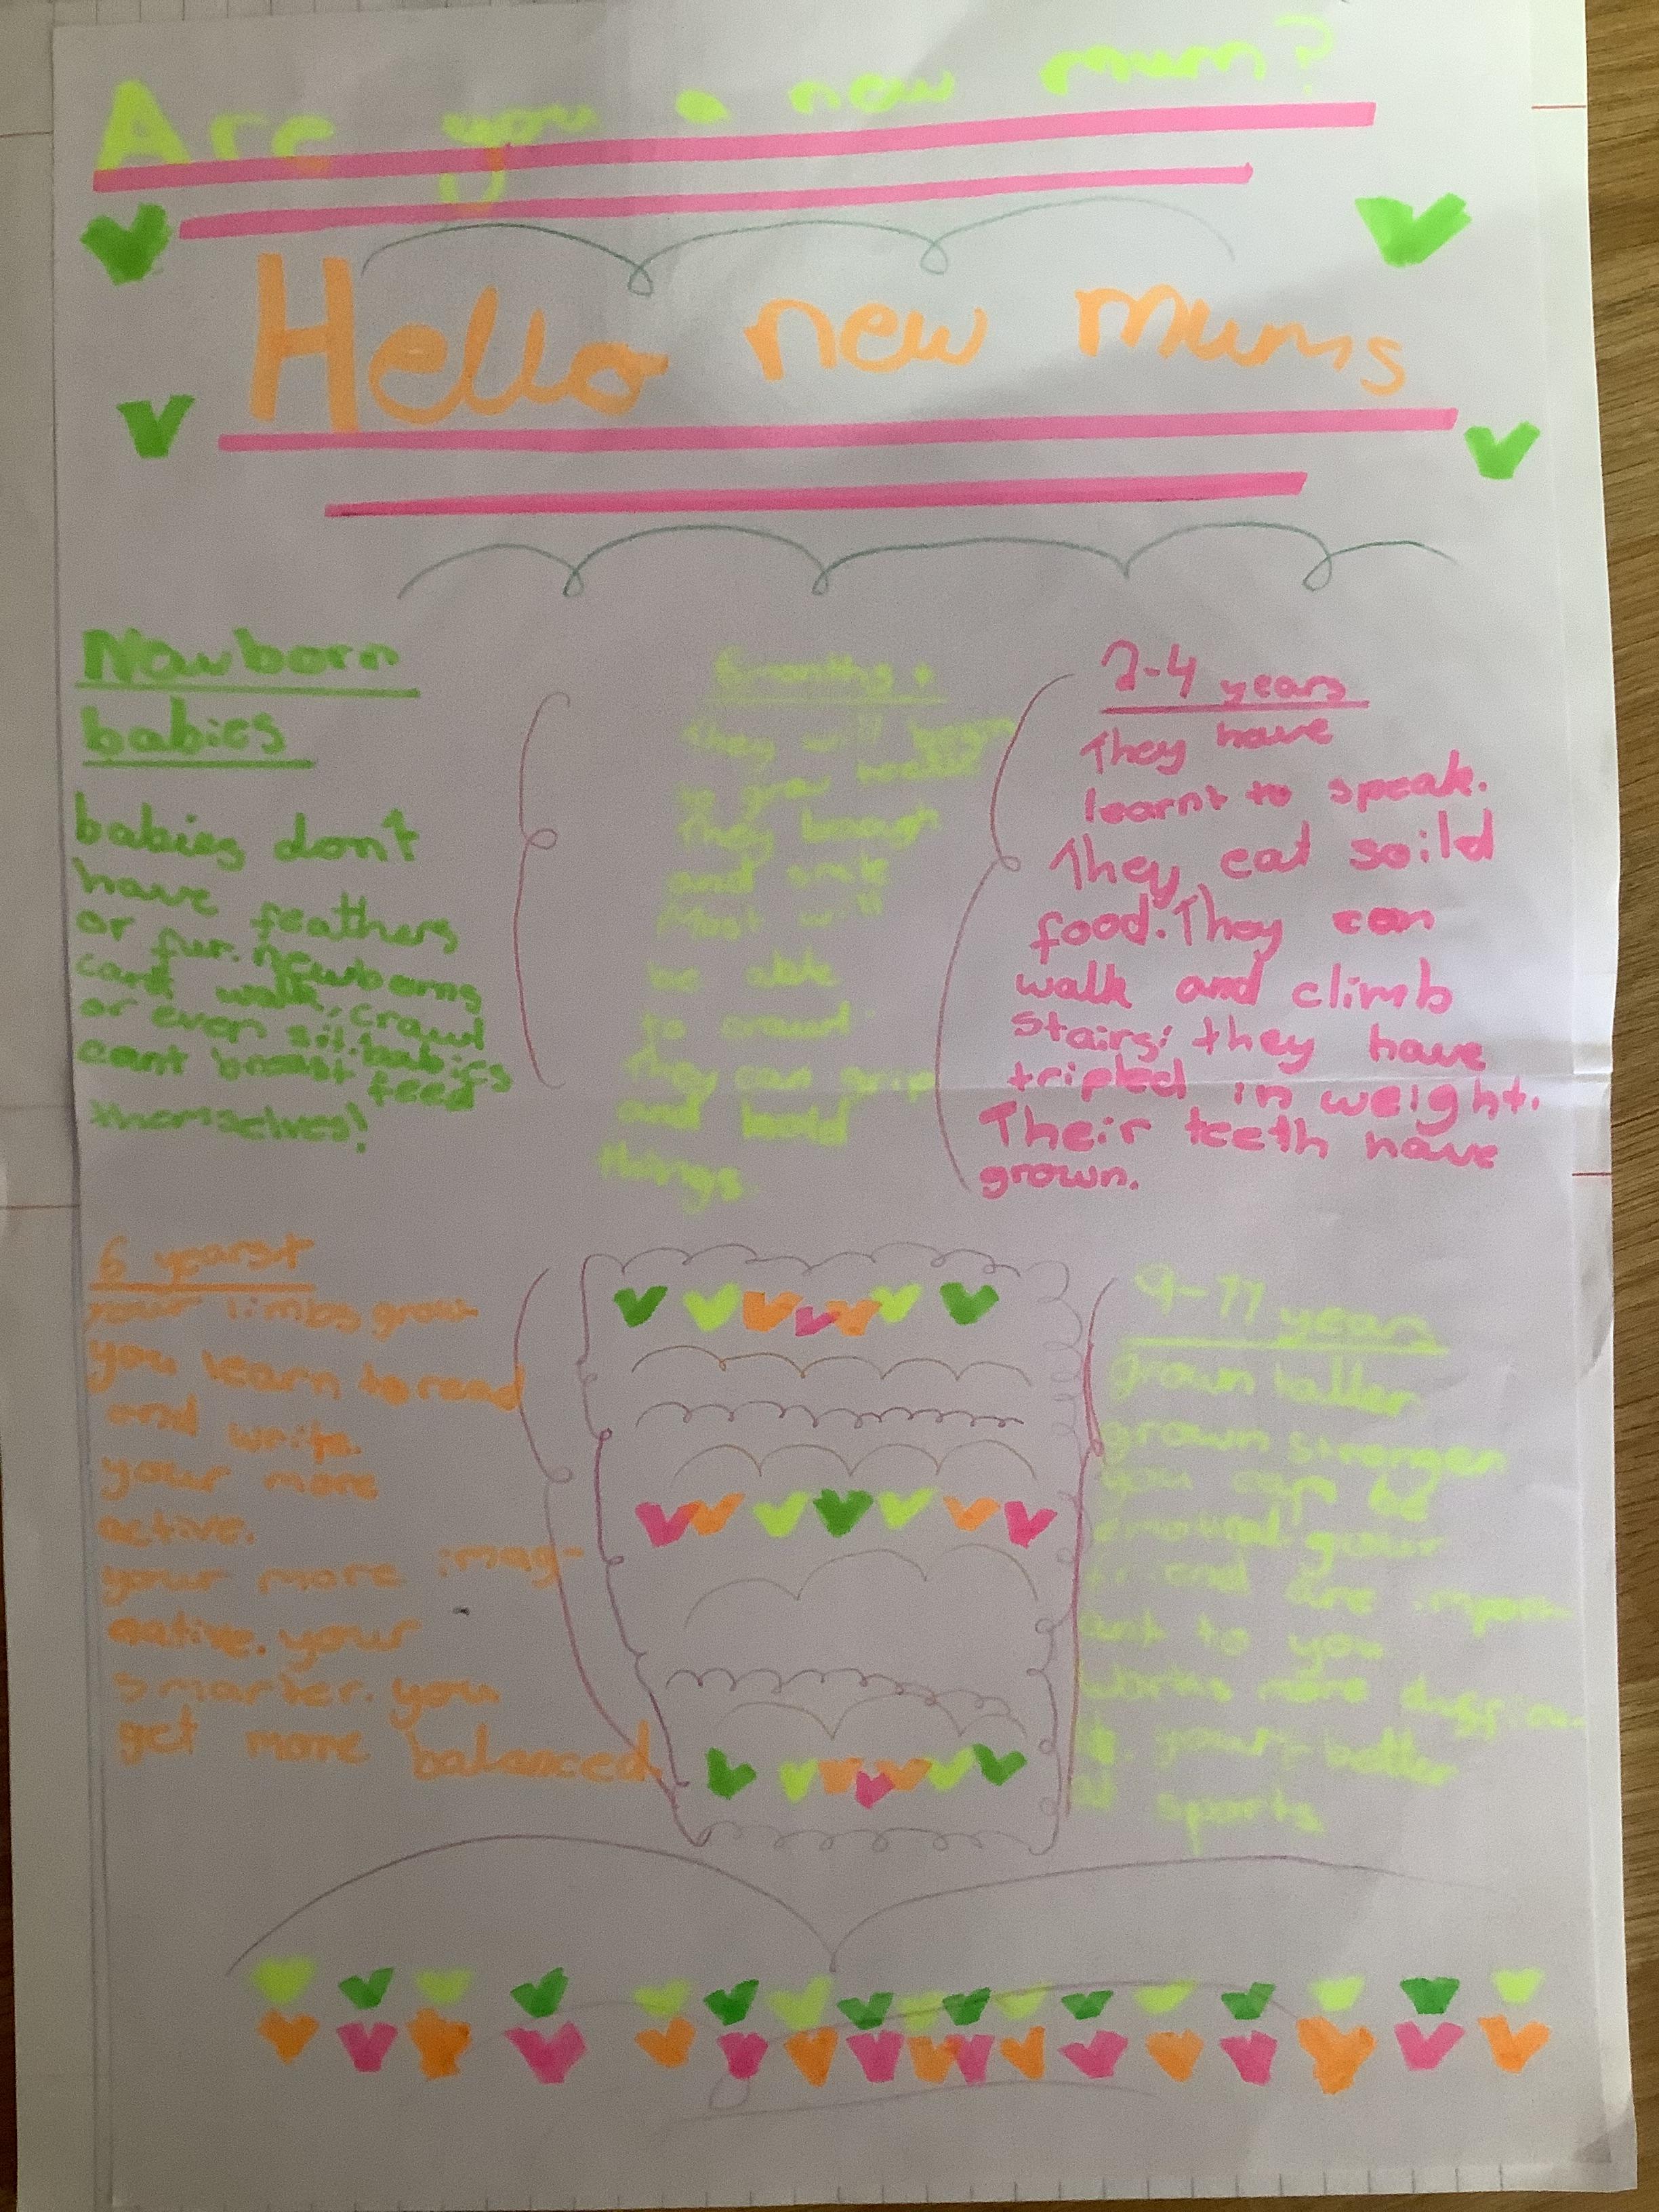 Are you a new mum?
Hello new mums
Newborn
babies
babies don't
have feathers
or fur. newborns
cant walk, crawl
or even sit. babies
cant breast feed
themselves!
6months +
They will begin
to grow teeth
They laugh
and smile
Most will
be able
to crawl
They can grip
and hold
things.
2-4 years
They have
learnt to speak.
They eat soild
food. They can
walk and climb
stairs. they have
tripled in weight.
Their teeth have
grown.
6 years+
your limbs grow
you learn to read
and write.
your more
active.
your more imag-
native. your
smarter. you
get more balanced
9-11 years
grown taller
grown stronger
you can be
your
friend are import
ant to you
works more
better
at sports